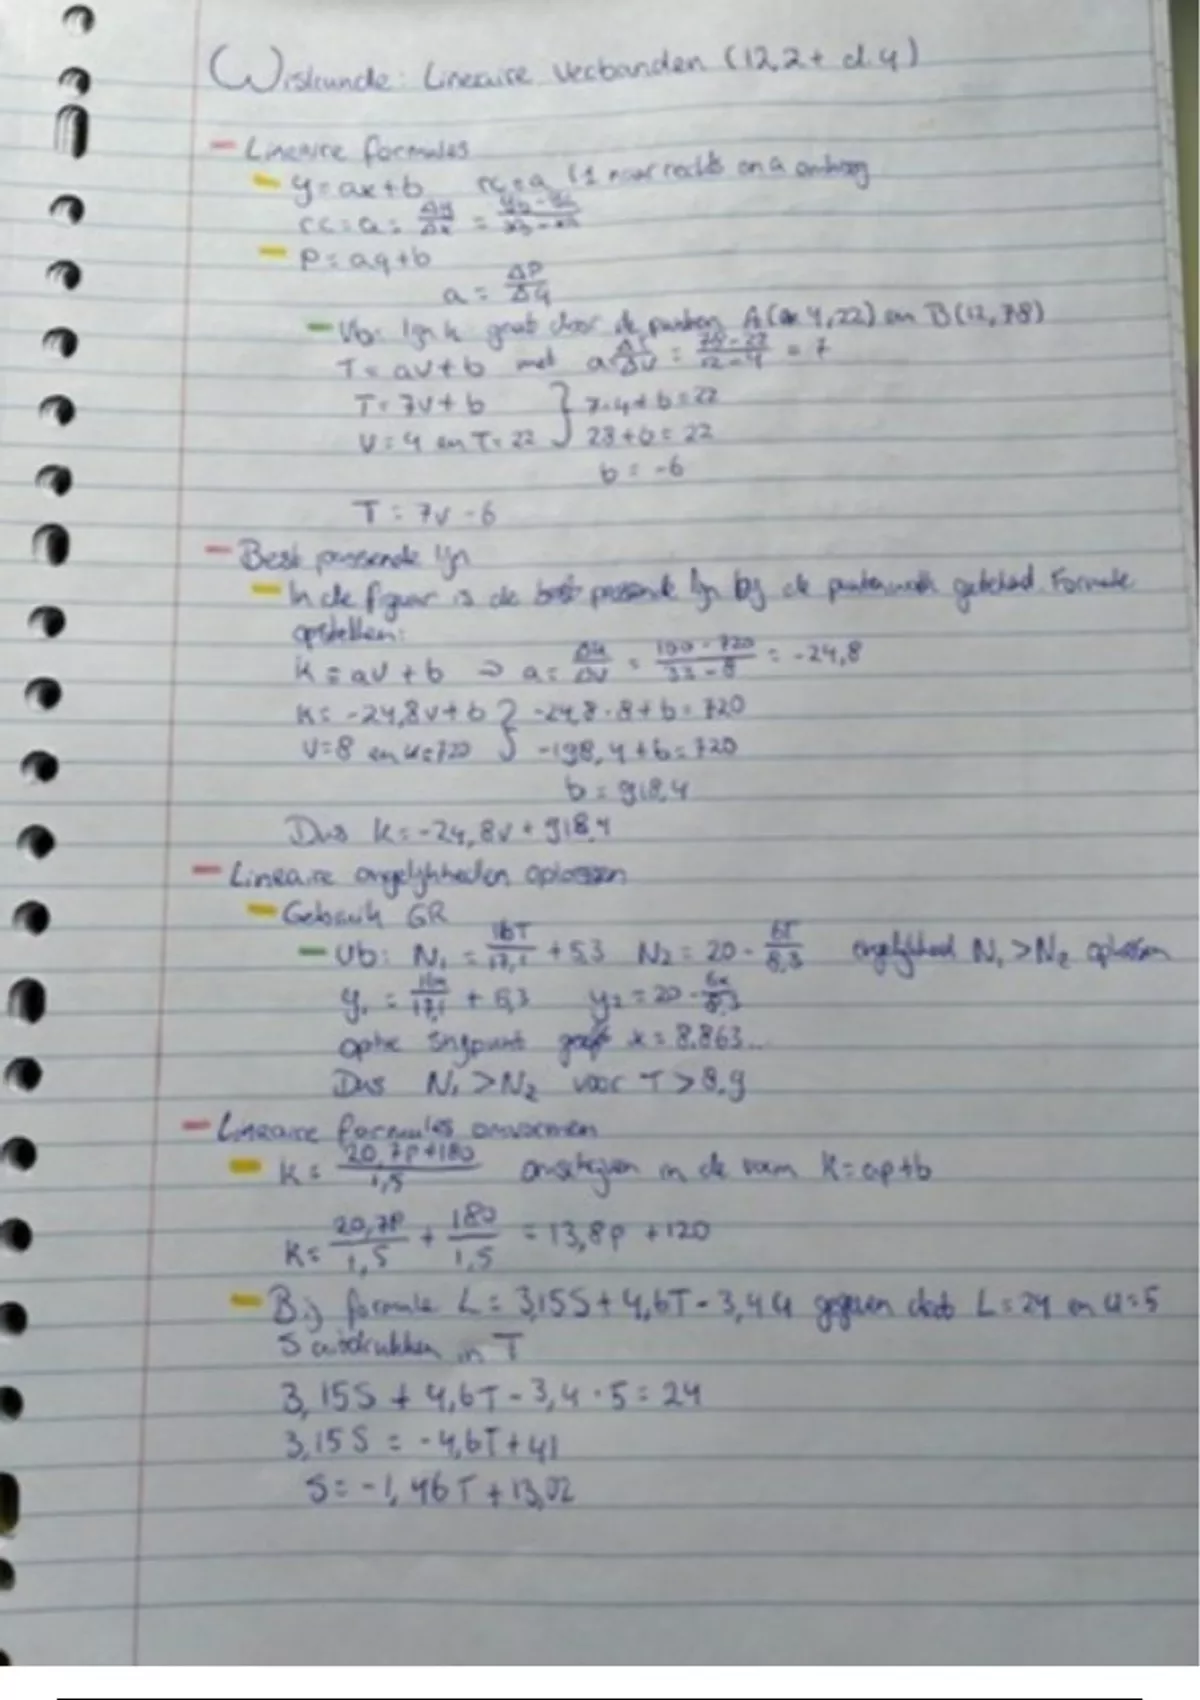 Wiskunde: Lineaire verbanden (12.2+ d.4)
- Lineaire formules
- y = ax+b rc = a (1 naar rechts en a omhoog
rc = a = Δy/Δx = yB-yA/xB-xA
- P = aq+b
a = ΔP/Δq
- Vb: lijn k gaat door de punten A(4,22) en B(12,78)
T = av+b met a ΔT/Δv = 78-22/12-4 = 7
T = 7v+b } 7·4+b=22
v = 4 en T = 22 28+b = 22
b = -6
T = 7v-6
- Best passende lijn
- In de figuur is de best passende lijn bij de puntenwolk getekend. Formule
opstellen:
K = av+b ⇒ a = ΔK/Δv = 100-720/33-8 = -24,8
K = -24,8v+b } -24,8·8+b = 720
v=8 en K=720 -198,4+b=720
b = 918,4
Dus K = -24,8v + 918,4
- Lineaire ongelijkheden oplossen
- Gebruik GR
- Vb: N₁ = 16T/17,1 + 5,3 N₂ = 20 - 6T/8,3 ongelijkheid N₁ > N₂ oplossen
y₁ = 16x/17,1 + 5,3 y₂ = 20 - 6x/8,3
optie snijpunt geeft x = 8.863...
Dus N₁ > N₂ voor T > 8.9
- Lineaire formules omvormen
- K = 20,7p+180/1,5 omschrijven in de vorm K = ap+b
K = 20,7p/1,5 + 180/1,5 = 13,8p + 120
- Bij formule L = 3,15S + 4,6T - 3,4u gegeven dat L = 24 en u = 5
S uitdrukken in T
3,15S + 4,6T - 3,4·5 = 24
3,15S = -4,6T + 41
S = -1,46T + 13,02